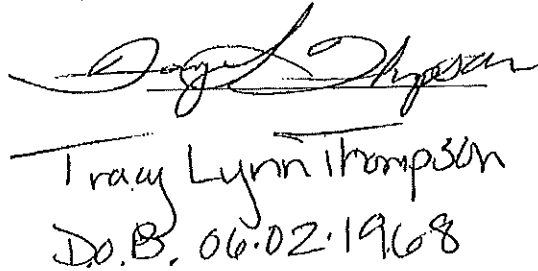 Tracy L Thompson
Tracy Lynn Thompson
D.O.B. 06.02.1968